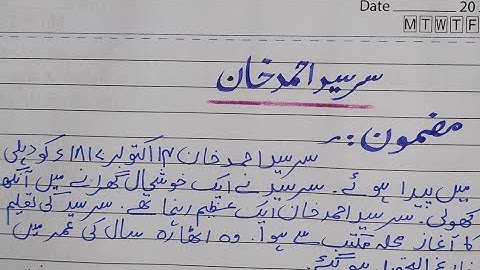 Date 20
M T W T F
سر سید احمد خان
مضمون:~
سر سید احمد خان ۱۷ اکتوبر ۱۸۱۷ء کو دہلی
میں پیدا ہوئے۔ سر سید نے ایک خوشحال گھرانے میں آنکھ
کھولی۔ سر سید احمد خان ایک عظیم رہنما تھے۔ سر سید کی تعلیم
کا آغاز محلہ مکتب سے ہوا۔ وہ اٹھارہ سال کی عمر میں
فارغ التحصیل ہو گئے۔